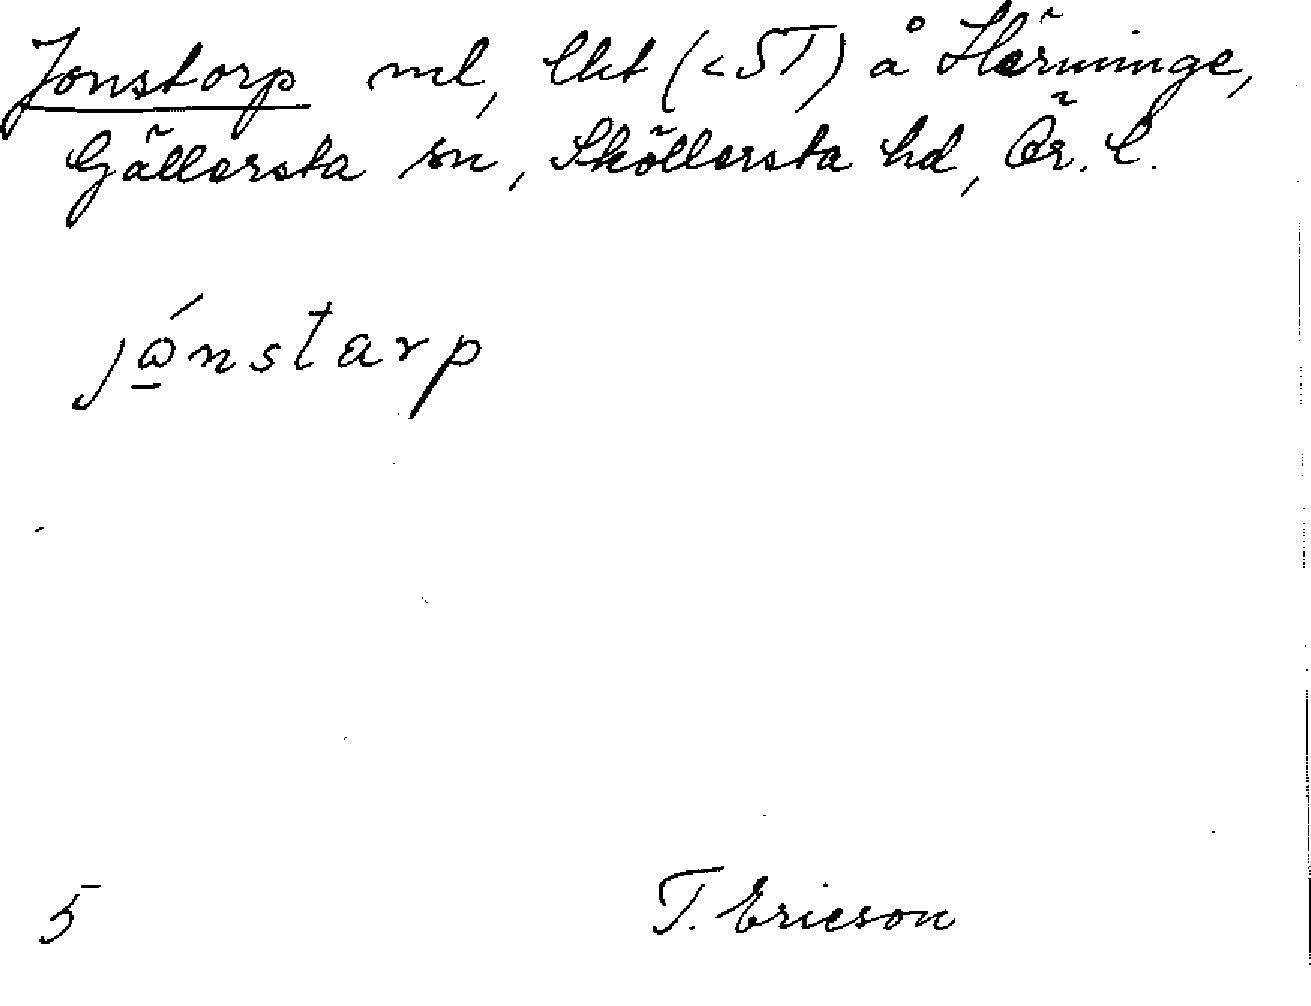 Jonstorp ml, lht (<ST) å Härminge,
Gällersta sn, Sköllersta hd, Ör. l.
jó̲nstarp
5 T. Ericson